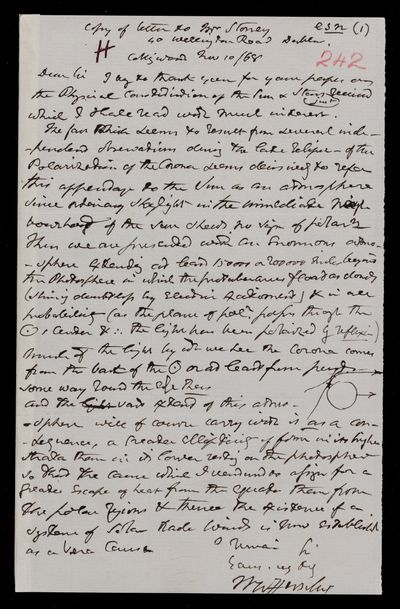 Copy of letter to Mr Stoney
esn (1)
40 Wellington Road Dublin
H
Collingwood Nov 10/68
242
Dear Sir I beg to thank you for your paper on
the Physical Constitution of the Sun & Stars received
which I shall read with much interest.
The fact which seems to result from several inde-
-pendent observations during the late Eclipse - of the
Polarization of the Corona seems decisively to refer
this appendage to the Sun as an atmosphere
since ordinary skylight in the immediate neigh
bourhood of the sun shews no sign of polarizn
Thus we are presented with an enormous atmo-
-sphere extending at least 15000 or 200000 miles beyond
the Photosphere in which the protuberances float as clouds
(shining doubtless by Electric excitement) & in all
probability (as the plane of poln passes through the
⊙'s center & ∴ the light has been polarized by reflexion)
much of the light by which we see the Corona comes
from the back of the ⊙ or at least from
some way round the
and the vast extent of this atmo-
-sphere will of course carry with it as a con-
-sequence, a greater ellipticity of form in its higher
strata than in its lower resting on the photosphere
so that the cause which I ventured to assign for a
greater escape of heat from the equator than from
the polar regions & thence the existence of a
system of Solar Trade Winds is now established
as a vera causa
I remain Sir
Yours very truly